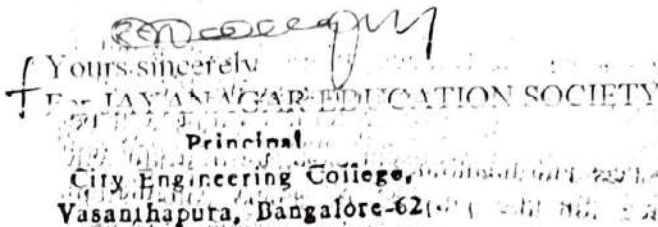 Yours sincerely
For JAYANAGAR EDUCATION SOCIETY
Principal
City Engineering College,
Vasanthapura, Bangalore-62